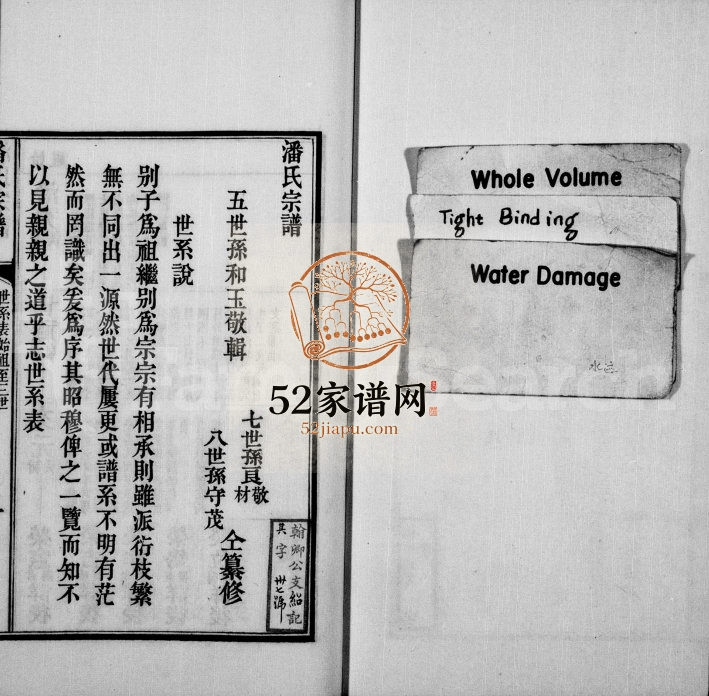 潘氏宗譜
五世孫和玉敬輯
七世孫良敬
材
八世孫守茂
仝纂修
世系說
別子為祖繼別為宗宗有相承則雖派衍枝繁
無不同出一源然世代屢更或譜系不明有茫
然而罔識矣爰為序其昭穆俾之一覽而知不
以見親親之道乎志世系表
潘氏宗譜
世系表始祖至三世
翰卿公支紹記
卅七號
Whole Volume
Tight Binding
Water Damage
52家谱网
52jiapu.com